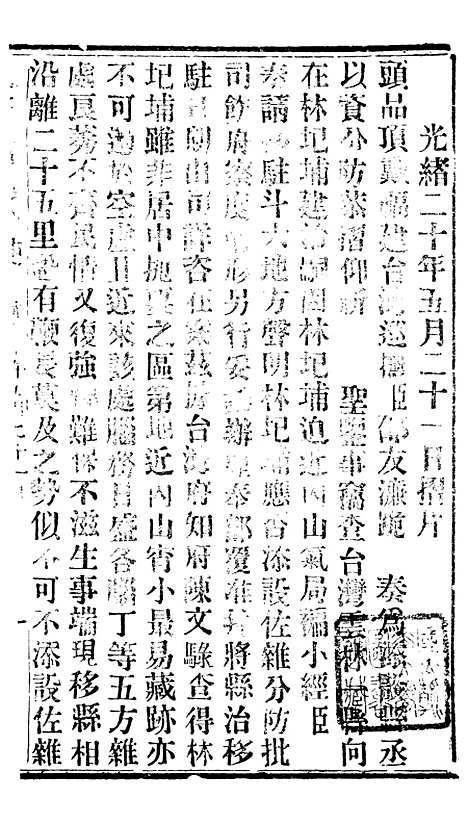 光緒二十年五月二十一日摺片
頭品頂戴福建台灣巡撫臣邵友濂跪 奏為添設縣丞
以資分防恭摺仰祈 聖鑒事竊查台灣雲林縣向
在林圯埔建治嗣因林圯埔迫近內山氣局褊小經臣
奏請移駐斗六地方聲明林圯埔應否添設佐雜分防批
司飭府察度情形另行妥議辦理奉部覆准并將縣治移
駐日期由司詳咨在案茲據台灣府知府陳文騄查得林
圯埔雖非居中扼要之區第地近內山宵小最易藏跡亦
不可過於空虛且近來該處腦務日盛各腦丁等五方雜
處良莠不齊民情又復強悍難保不滋生事端現移縣相
沿離二十五里更有鞭長莫及之勢似不可不添設佐雜